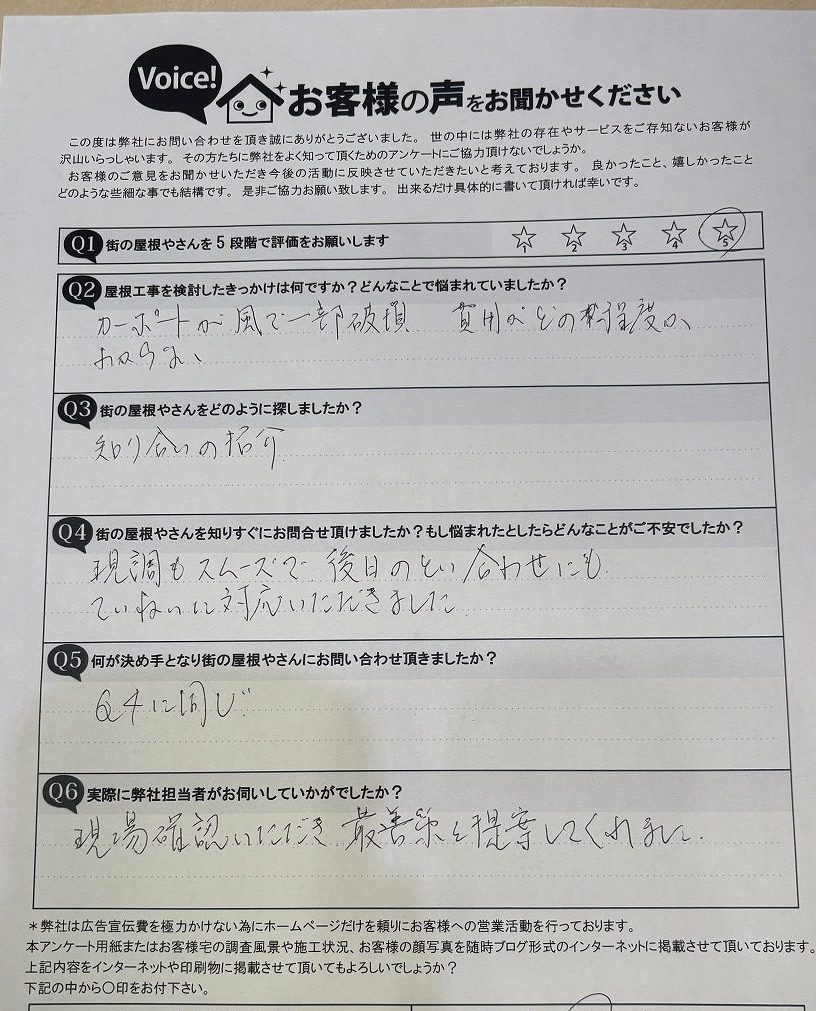 Voice!
お客様の声をお聞かせください
この度は弊社にお問い合わせを頂き誠にありがとうございました。 世の中には弊社の存在やサービスをご存知ないお客様が
沢山いらっしゃいます。 その方たちに弊社をよく知って頂くためのアンケートにご協力頂けないでしょうか。
お客様のご意見をお聞かせいただき今後の活動に反映させていただきたいと考えております。 良かったこと、嬉しかったこと
どのような些細な事でも結構です。 是非ご協力お願い致します。 出来るだけ具体的に書いて頂ければ幸いです。
Q1 街の屋根やさんを5段階で評価をお願いします
1 2 3 4 5
Q2 屋根工事を検討したきっかけは何ですか?どんなことで悩まれていましたか?
カーポートが風で一部破損 費用がどの程度か、
わからない
Q3 街の屋根やさんをどのように探しましたか?
知り合いの紹介
Q4 街の屋根やさんを知りすぐにお問合せ頂けましたか?もし悩まれたとしたらどんなことがご不安でしたか?
現調もスムーズで 後日のとい合わせにも
ていねいに対応いただきました
Q5 何が決め手となり街の屋根やさんにお問い合わせ頂きましたか?
Q4に同じ
Q6 実際に弊社担当者がお伺いしていかがでしたか?
現場確認いただき 最善策を提案してくれました.
*弊社は広告宣伝費を極力かけない為にホームページだけを頼りにお客様への営業活動を行っております。
本アンケート用紙またはお客様宅の調査風景や施工状況、お客様の顔写真を随時ブログ形式のインターネットに掲載させて頂いております。
上記内容をインターネットや印刷物に掲載させて頂いてもよろしいでしょうか?
下記の中から〇印をお付下さい。